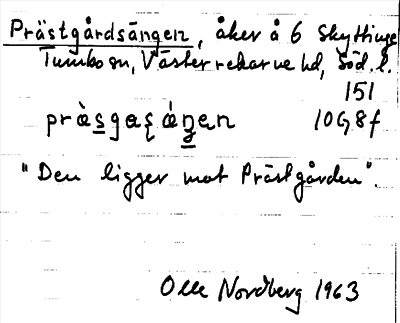 Prästgårdsängen, åker å 6 Skyttinge
Tumbo sn, Västerrekarne hd, Söd. l.
151
pràsgaṣ áŋen 10G8f
"Den ligger mot Prästgården".
Olle Nordberg 1963